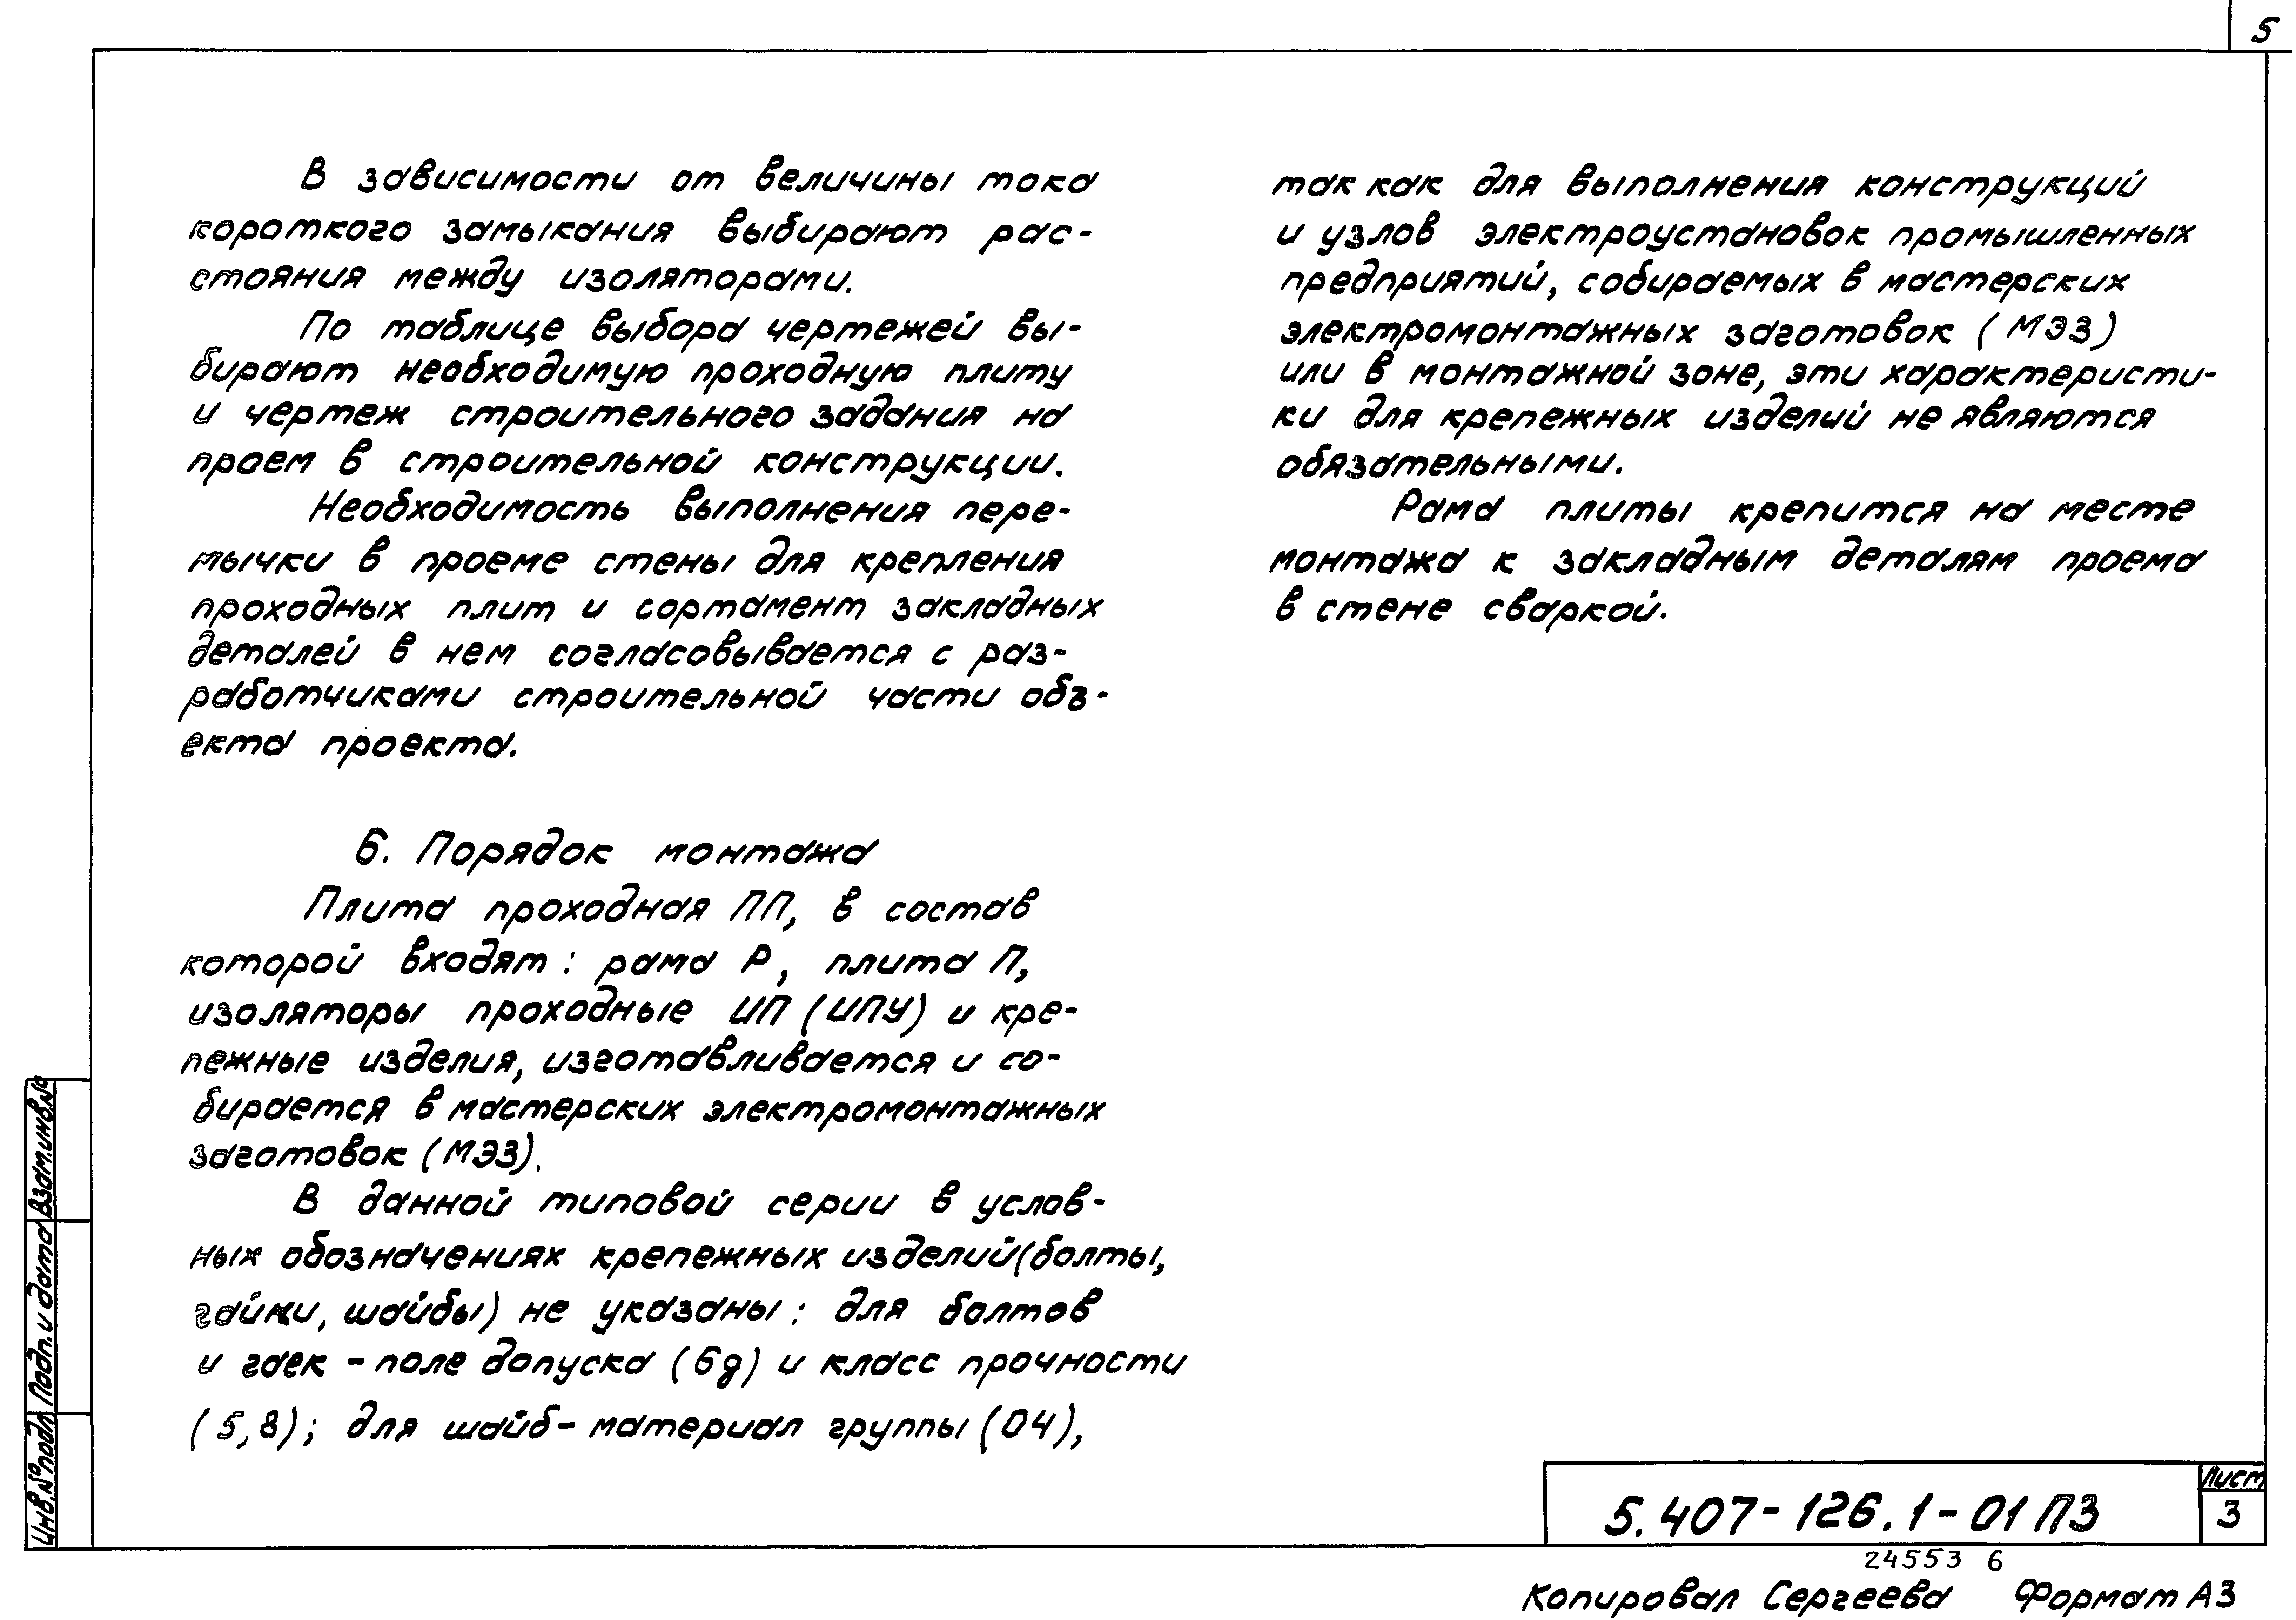 5
В зависимости от величины тока
короткого замыкания выбирают рас-
стояния между изоляторами.
По таблице выбора чертежей вы-
бирают необходимую проходную плиту
и чертеж строительного задания на
проем в строительной конструкции.
Необходимость выполнения пере-
мычки в проеме стены для крепления
проходных плит и сортамент закладных
деталей в нем согласовывается с раз-
работчиками строительной части объ-
екта проекта.
6. Порядок монтажа
Плита проходная ПП, в состав
которой входят: рама Р, плита П,
изоляторы проходные ИП (ИПУ) и кре-
пежные изделия, изготавливается и со-
бирается в мастерских электромонтажных
заготовок (МЭЗ).
В данной типовой серии в услов-
ных обозначениях крепежных изделий (болты,
гайки, шайбы) не указаны: для болтов
и гаек - поле допуска (6g) и класс прочности
(5,8); для шайб - материал группы (04),
так как для выполнения конструкций
и узлов электроустановок промышленных
предприятий, собираемых в мастерских
электромонтажных заготовок (МЭЗ)
или в монтажной зоне, эти характеристи-
ки для крепежных изделий не являются
обязательными.
Рама плиты крепится на месте
монтажа к закладным деталям проема
в стене сваркой.
Инв.№подл Подп. и дата Взам.инв.№
5.407-126.1-01ПЗ
Лист
3
24553 6
Копировал Сергеева Формат А3